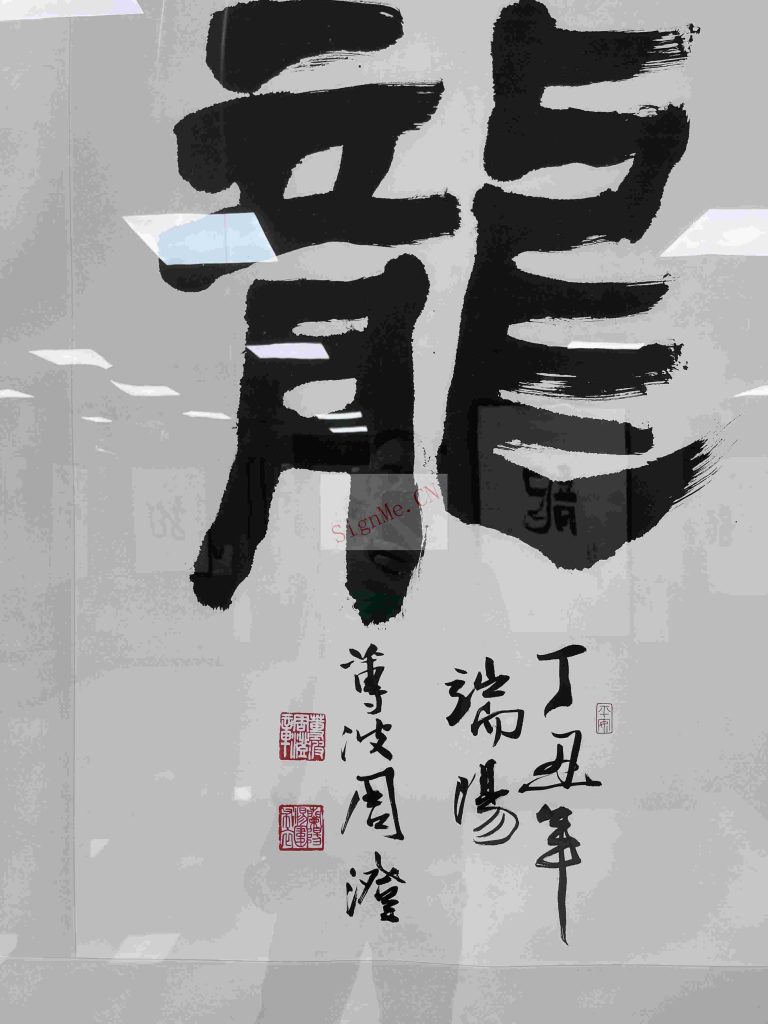 龍
丁丑年
端陽
蓴波周澄
SignMe.CN